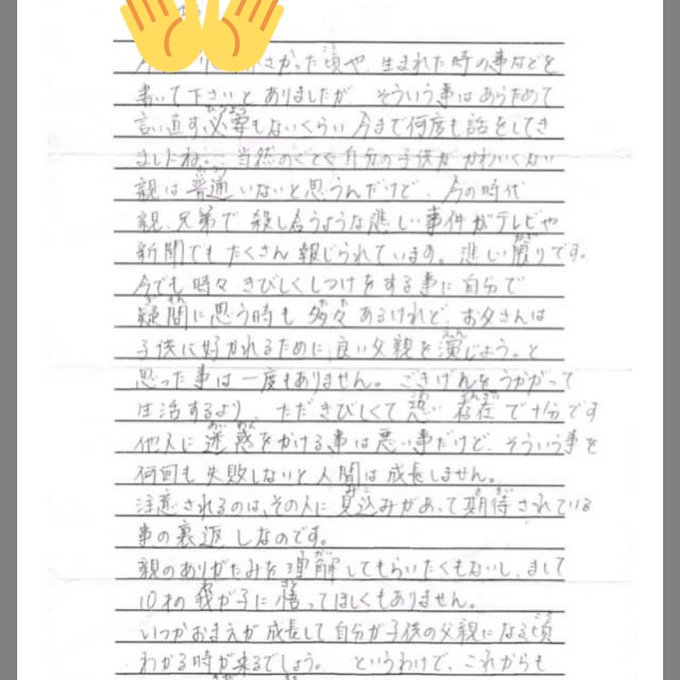 さかった頃や、生まれた時の事などを
書いて下さいと ありましたが、そういう事は あらためて
言い直す必要もないくらい 今まで何度も話をしてき
ましたね… 当然のごとく自分の子供が かわいくない
親は普通いないと思うんだけど、今の時代
親、兄弟で 殺し合うような悲しい事件がテレビや
新聞でも たくさん報じられています。悲しい限りです。
今でも時々 きびしくしつけをする事に 自分で
疑問に思う時も 多々 あるけれど、お父さんは
子供に好かれるために、良い父親を演じよう。と
思った事は一度もありません。ごきげんをうかがって
生活するより、ただ きびしくて 存在で十分です
他人に迷惑をかける事は悪い事だけど、そういう事を
何回も 失敗しないと 人間は 成長しません。
注意されるのは、その人に見込みがあって期待されている
事の裏返しなのです。
親のありがたみを理解してもらいたくもないし、まして
10才の我が子に悟ってほしくもありません。
いつかおまえが 成長して自分が子供の父親になる頃
わかる時が来るでしょう。 というわけで、これからも